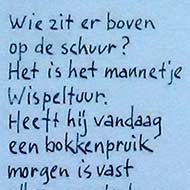 Wie zit er boven
op de schuur?
Het is het mannetje
Wispeltuur.
Heeft hij vandaag
een bokkenpruik
morgen is vast